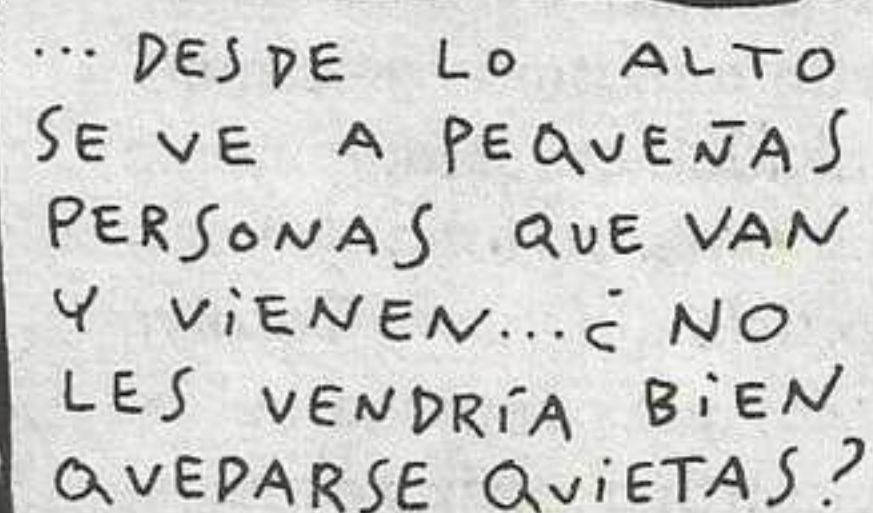 ... DESDE LO ALTO
SE VE A PEQUEÑAS
PERSONAS QUE VAN
Y VIENEN...¿NO
LES VENDRÍA BIEN
QUEDARSE QUIETAS?